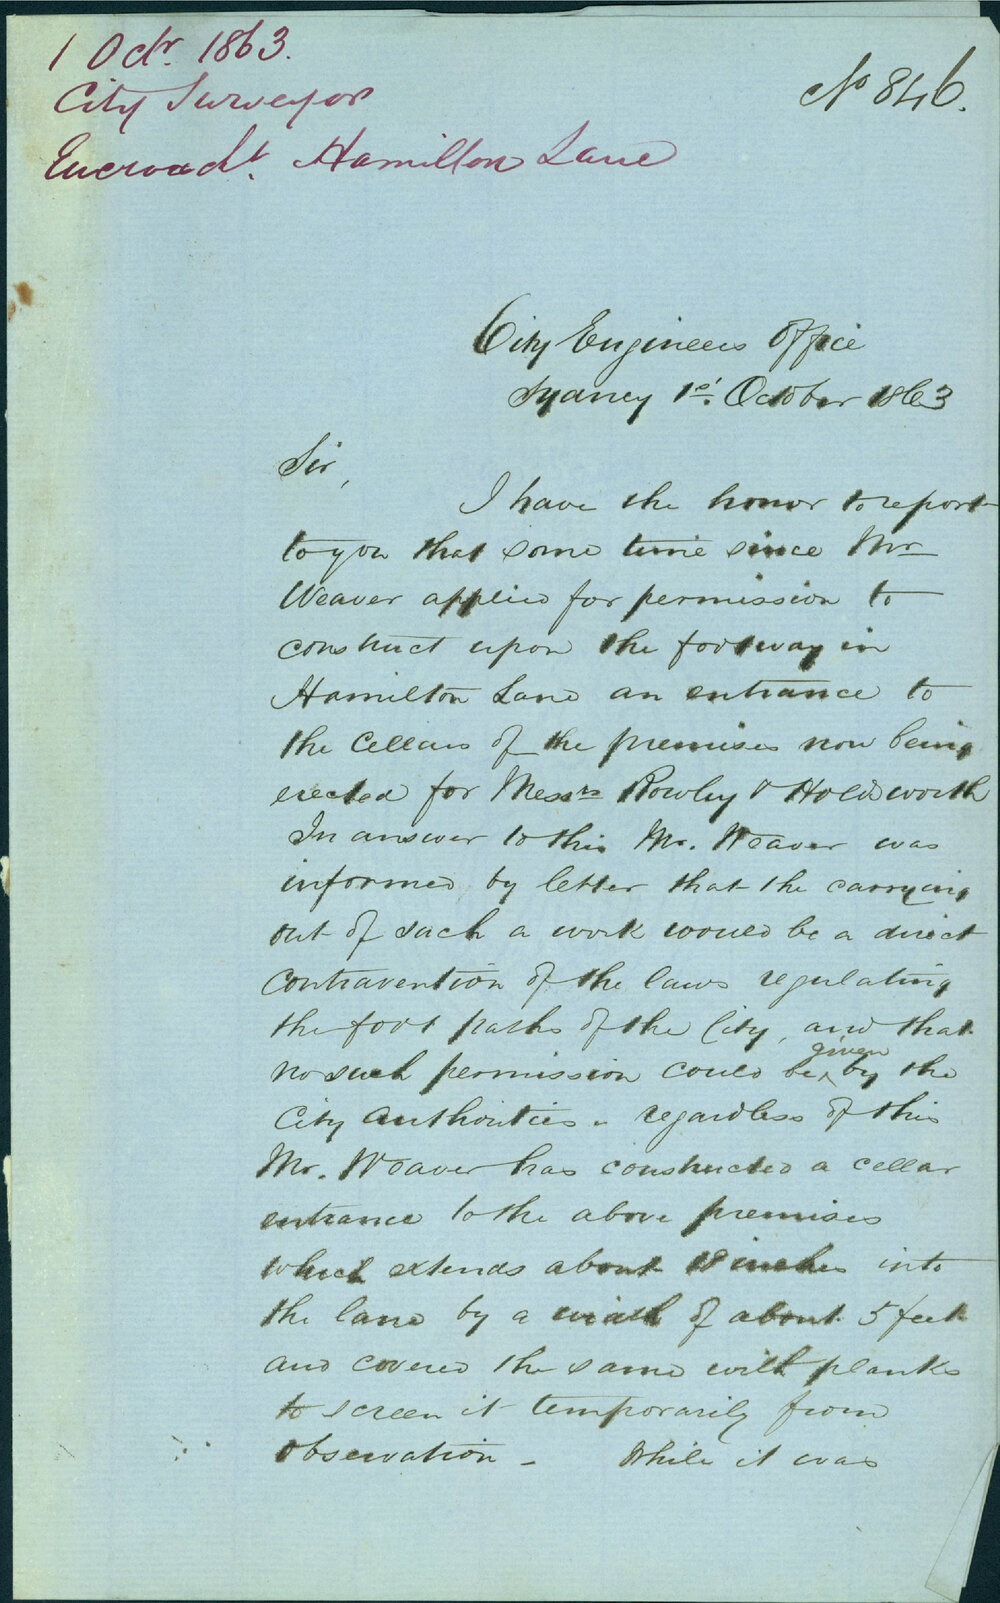 1 Octr. 1863.
City Surveyor
Encroacht. Hamilton Lane
No 846.
City Engineers Office
Sydney 1st. October 1863
Sir,
I have the honor to report
to you that some time since Mr
Weaver applied for permission to
construct upon the footway in
Hamilton Lane an entrance to
the Cellars of the premises now being
erected for Messrs Rowley & Holdsworth
In answer to this Mr. Weaver was
informed by letter that the carrying
out of such a work would be a direct
contravention of the laws regulating
the foot paths of the City, and that
no such permission could be given by the
City Authorities - regardless of this
Mr. Weaver has constructed a cellar
entrance to the above premises
which extends about 18 inches into
the lane by a width of about 5 feet
and covered the same with planks
to screen it temporarily from
observation - While it was